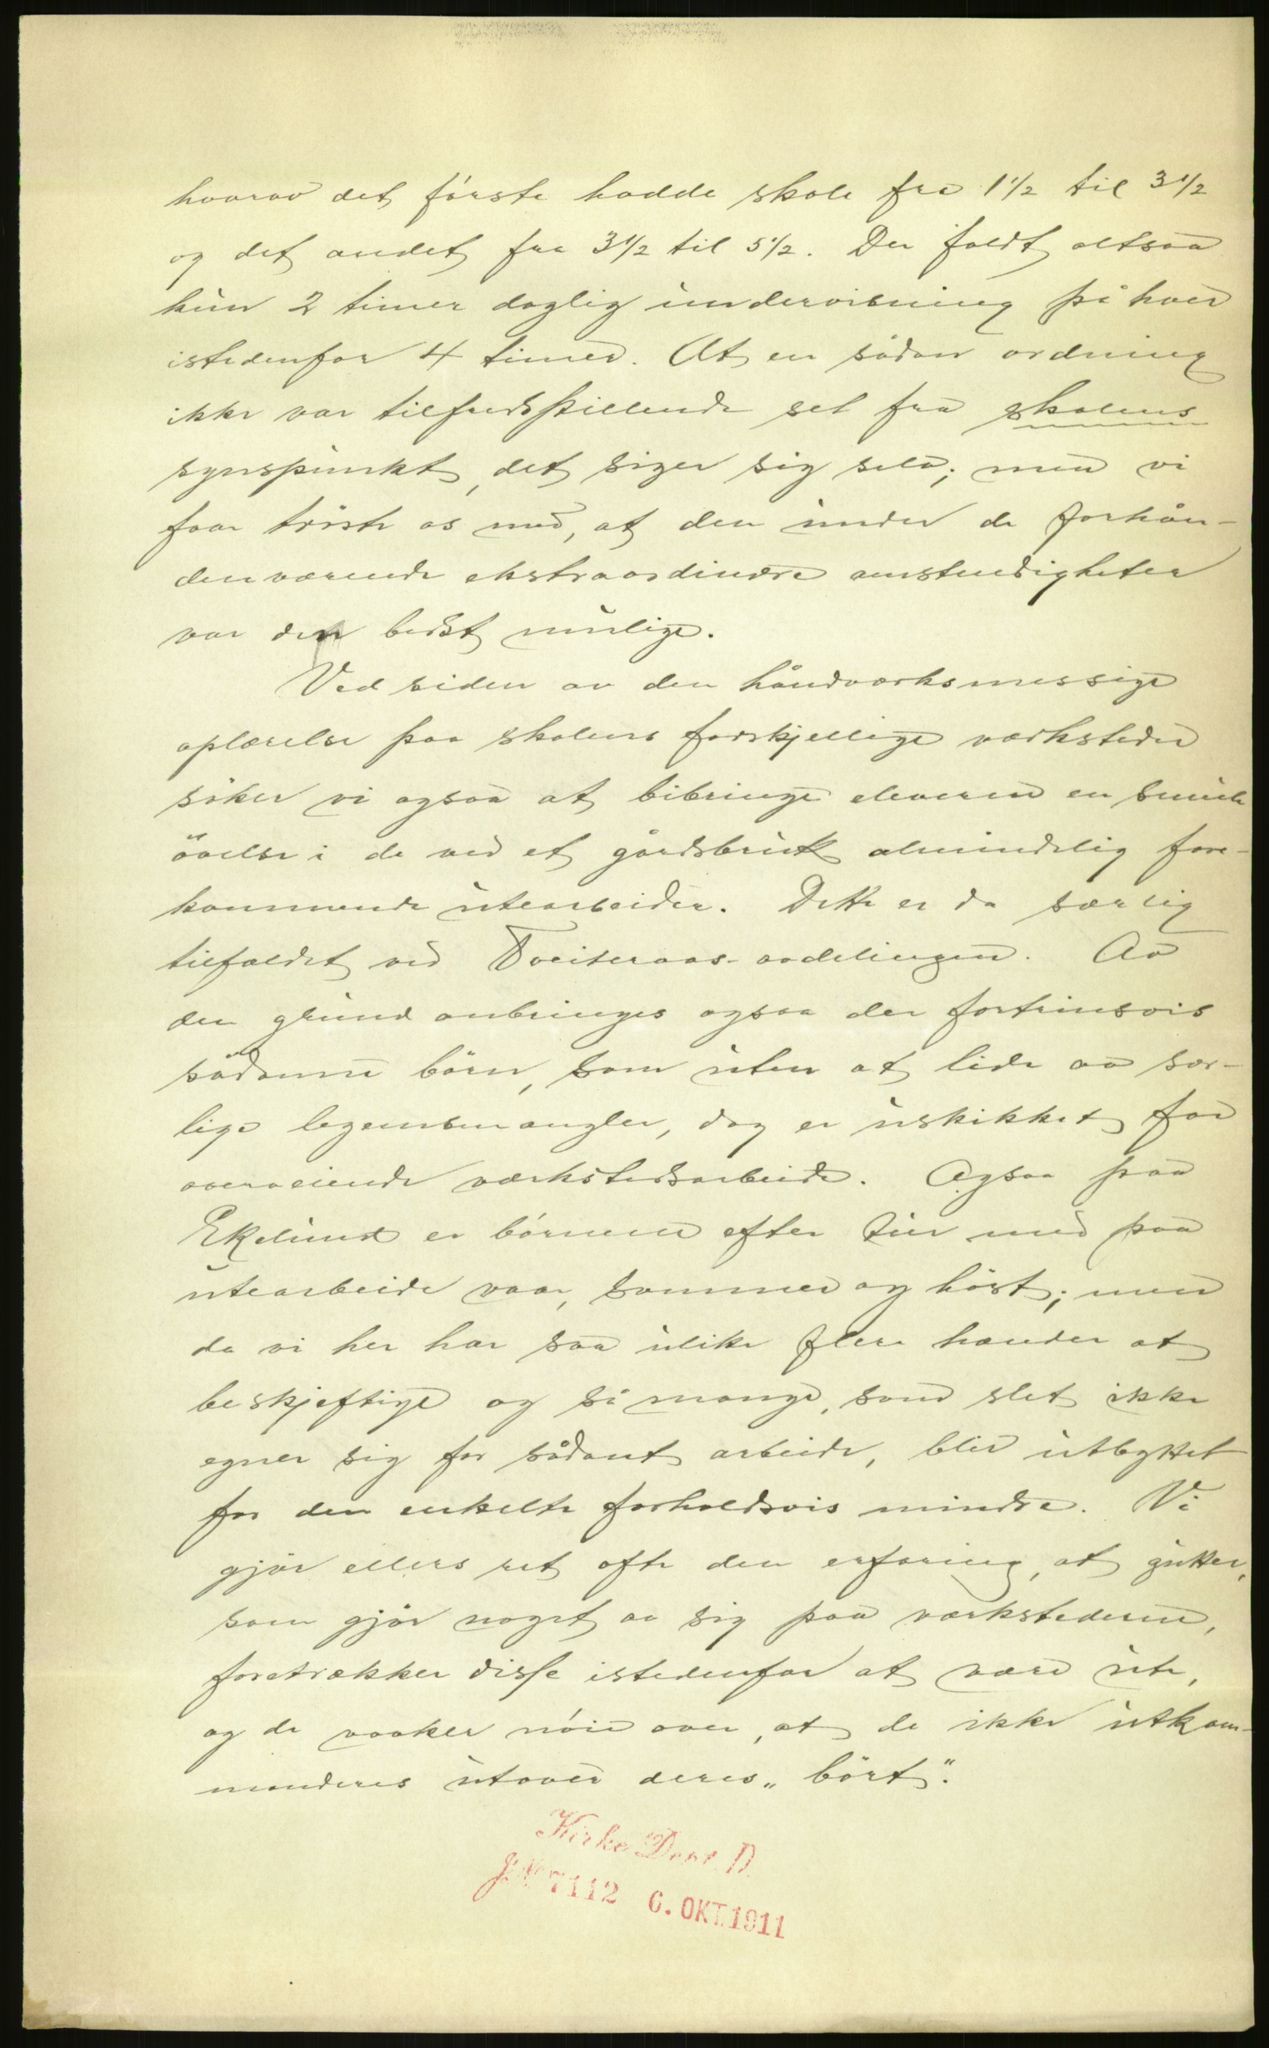 hvorav det første hadde skole fra 1½ til 3½
og det andet fra 3½ til 5½. Der faldt altsaa
kun 2 timer daglig undervisning på hver
istedenfor 4 timer. At en sådan ordning
ikke var tilfredsstillende set fra skolens
synspunkt, det siger sig selv; men vi
faar trøste os med, at den under de forhån-
denværende ekstraordinære omstendigheter
var den bedst mulige.
Ved siden av den håndverksmessige
oplærelse paa skolens forskjellige verksteder
søker vi ogsaa at bibringe eleverne en smule
øvelse i de ved et gårdsbruk almindelig fore-
kommende utearbeider. Dette er da særlig
tilfældet ved Tveiteraas-avdelingen. Av
den grund anbringes ogsaa der fortrinsvis
sådanne børn, som uten at lide av sær-
lige legemsmangler, dog er uskikket for
overveiende verkstedsarbeide. Ogsaa paa
Ekelund er børnene efter tur med paa
utearbeide vaar, sommer og høst; men
da vi her har saa ulike flere hænder at
beskjeftige og så mange, som slet ikke
egner sig for sådant arbeide, blir utbyttet
for den enkelte forholdsvis mindre. Vi
gjør ellers ret ofte den erfaring, at gutter,
som gjør noget av sig paa verkstederne,
foretrækker disse istedenfor at være ute,
og de vaaker nøie over, at de ikke utkom-
manderes utover deres „børt“.
Kirke Dept. D.
J.№ 7112 6. OKT. 1911